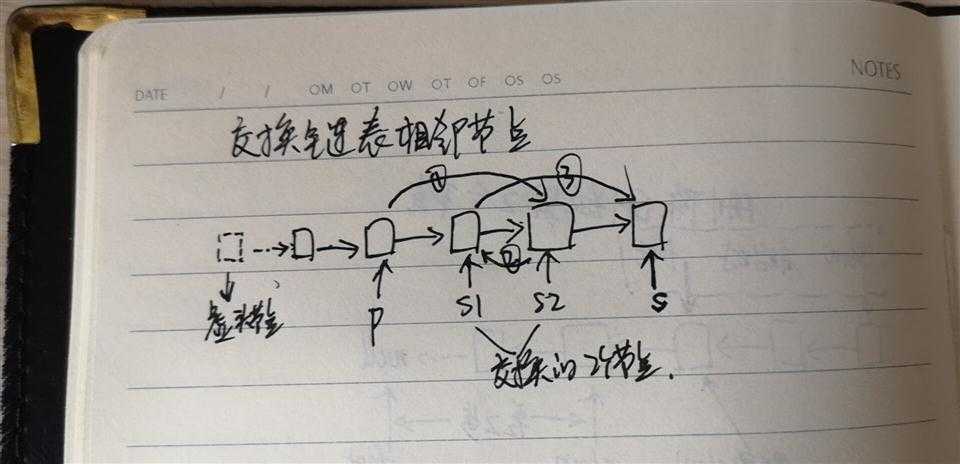 NOTES
DATE / / OM OT OW OT OF OS OS
交换链表相邻节点
① ③
②
虚头节点 P S1 S2 S
交换的2个节点.